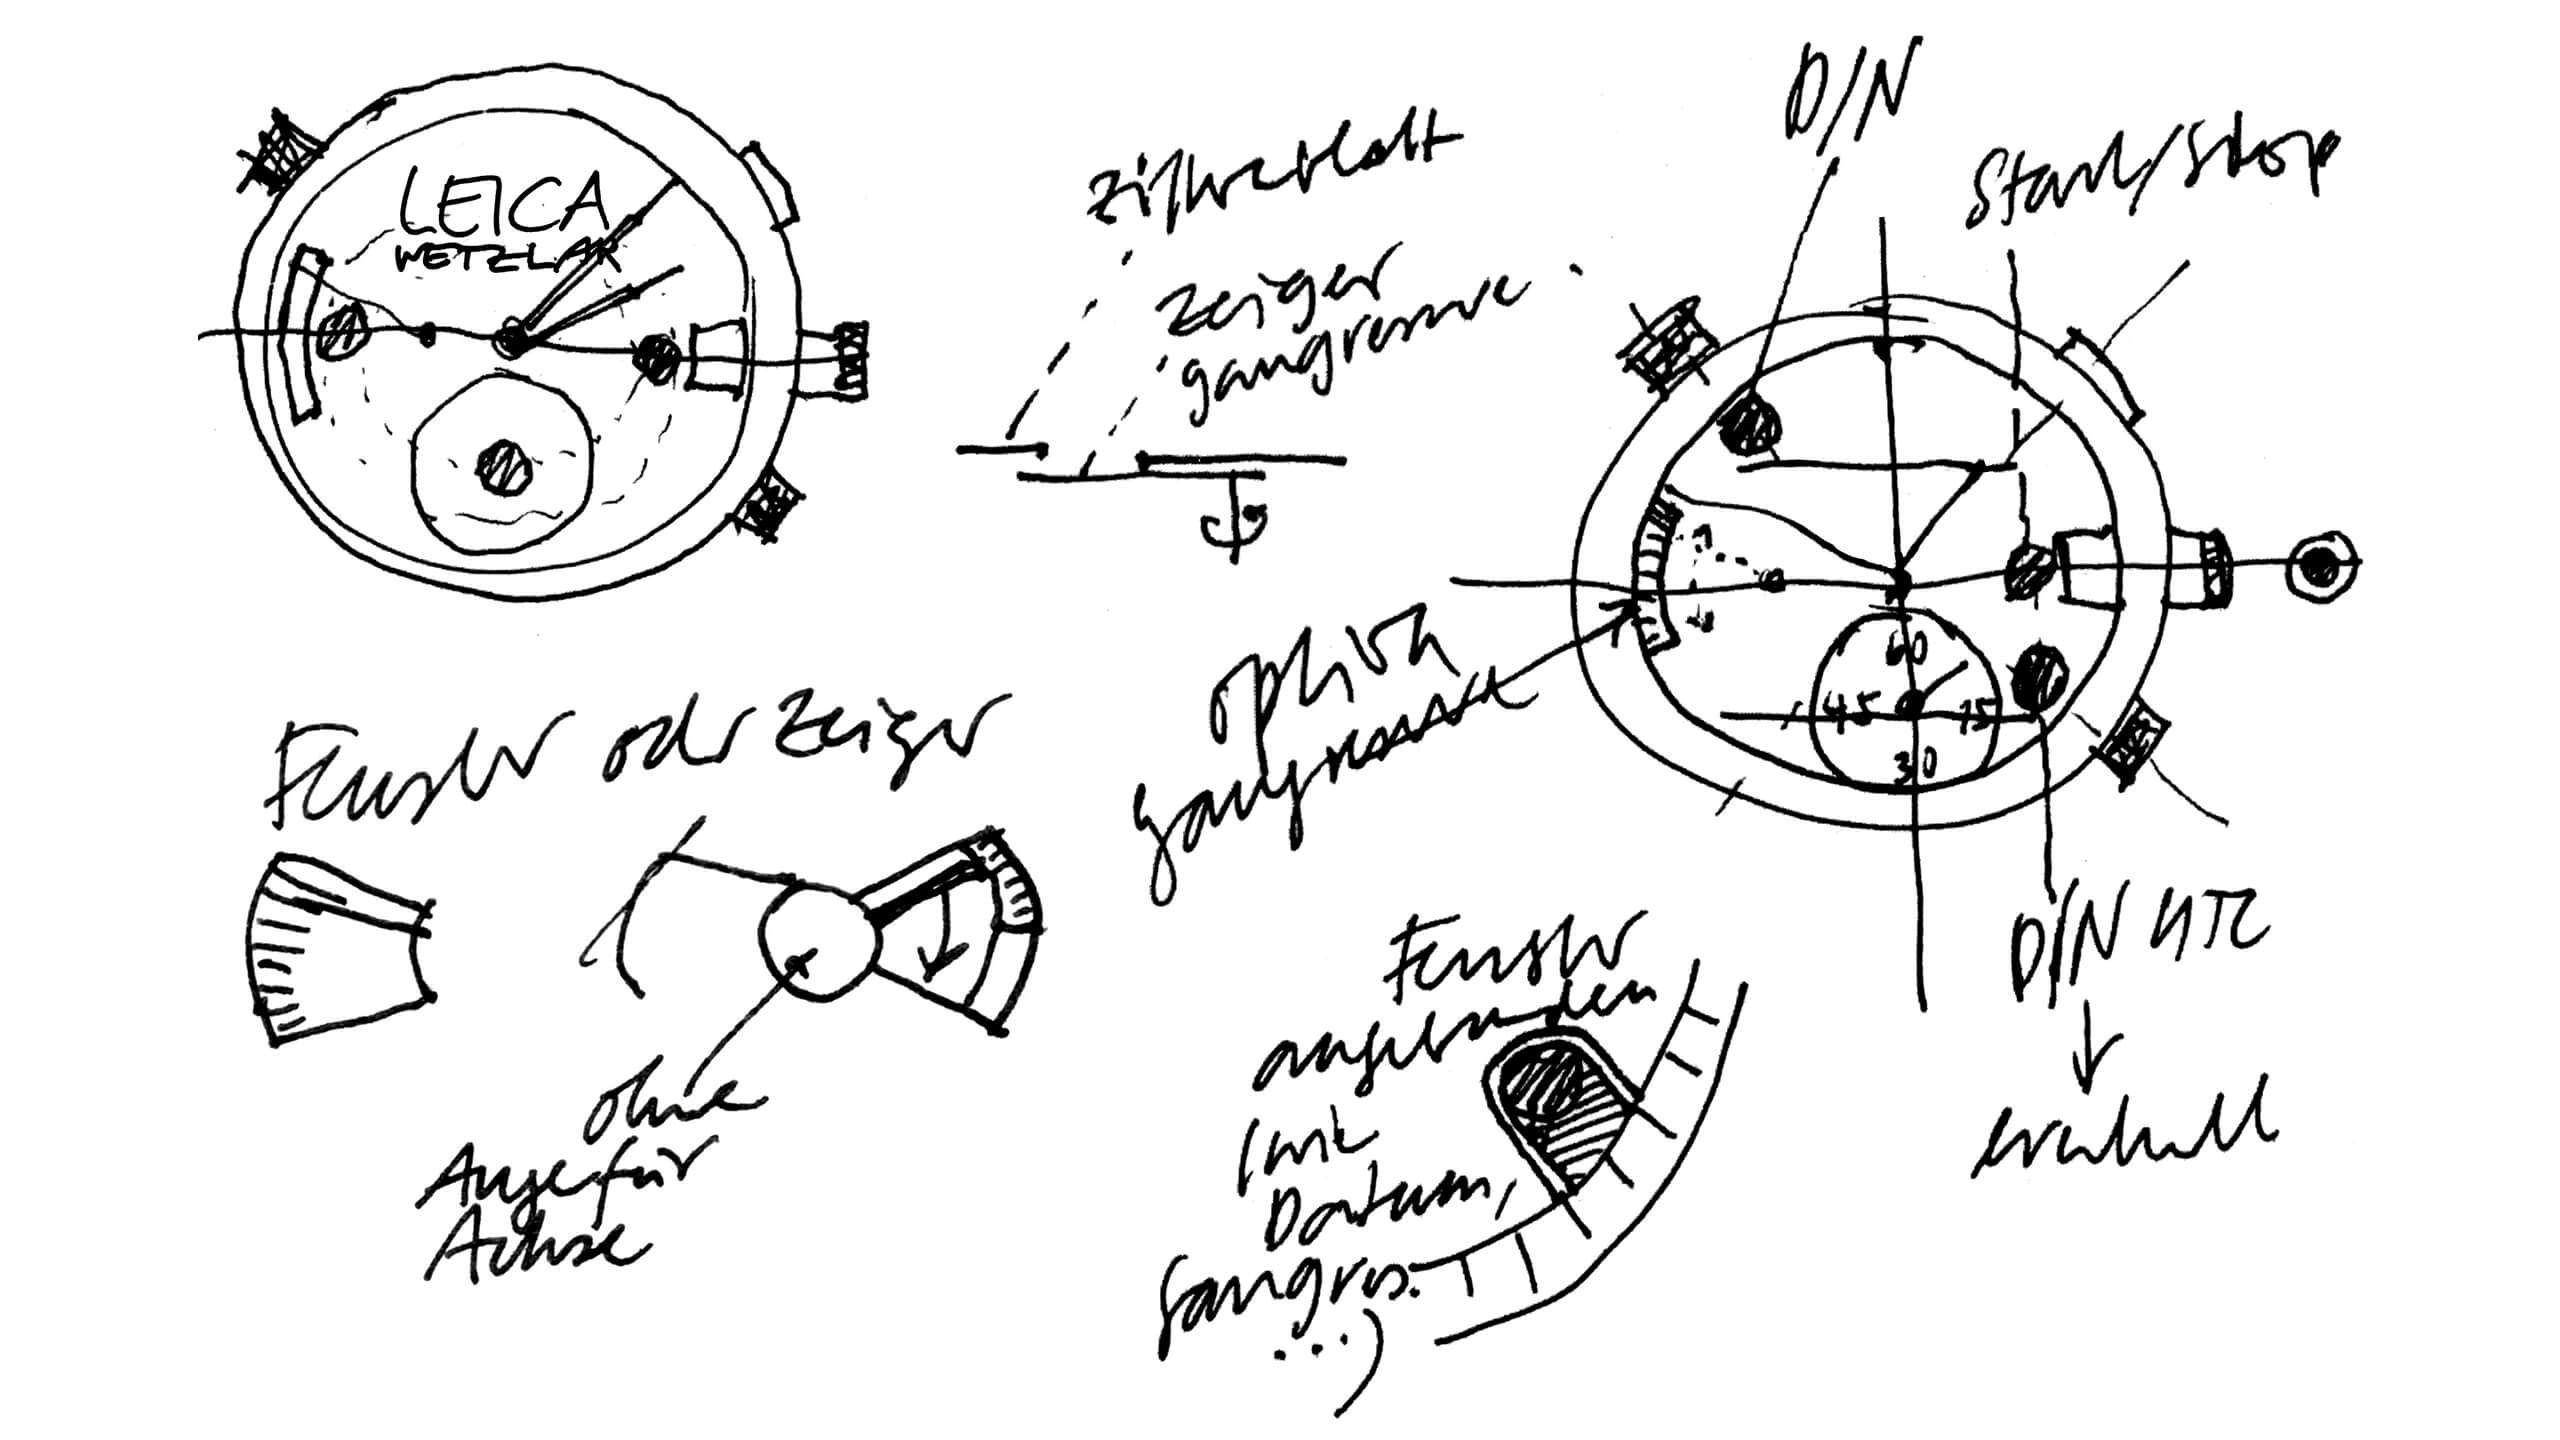 LEICA
WETZLAR
Zifferblatt
Zeiger
gangreserve
D/N
Start/Stop
60
45
15
30
optisch
gangreserve
Fenster oder Zeiger
ohne
Auge für
Achse
Fenster
angebunden
(mit
Datum,
Gangres.
...)
D/N UTC